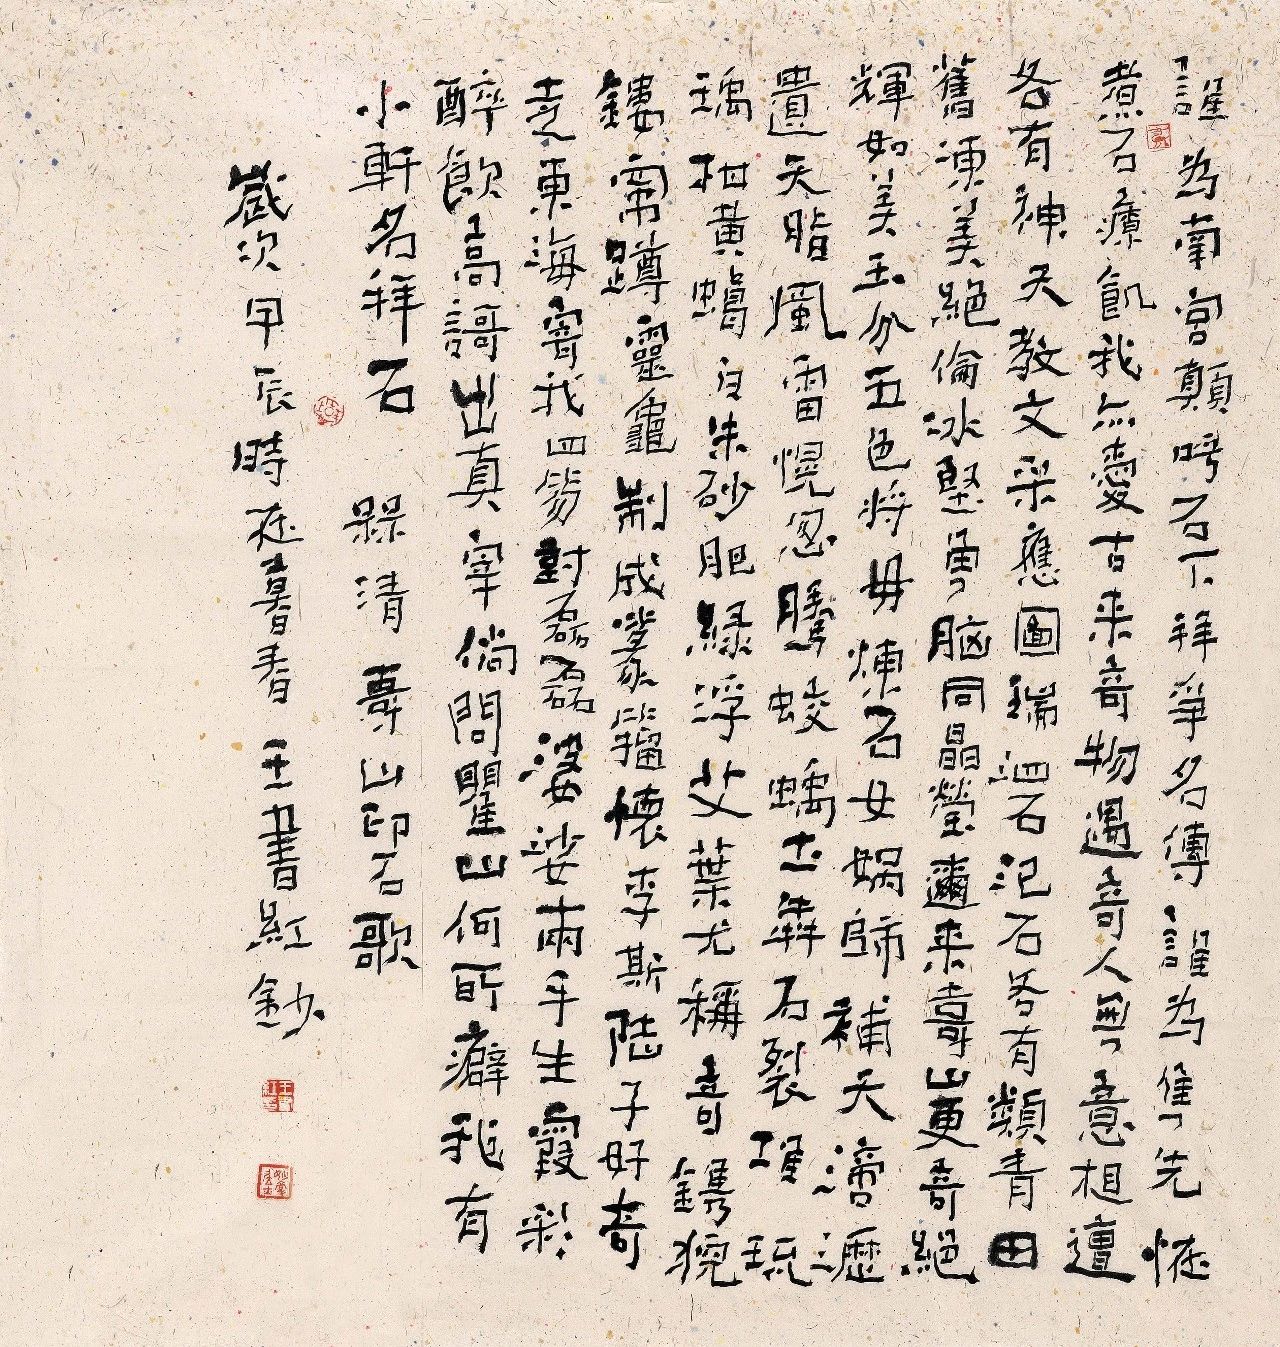 誰為南宮顛呼石下拜爭名傳誰為隽先怪
煮石療飢我亦愛古來奇物遇奇人無意相遭
各有神天教文采應圖瑞泗石汜石各有類青田
舊凍美絕倫冰堅勇腦同晶瑩邇來壽山更奇絕
輝如美玉分五色將毋煉石女媧歸補天滴瀝
遺天脂風雷愰忽騰蛟螭土犇石裂璀琉
瑀柑黃蠟白朱砂肥綠浮艾葉尤稱奇鐫猊
鏤啼蹲靈龜制成篆籀懷李斯陸子好奇
走東海寄我四笏對磊磊婆娑兩手生霞彩
醉飲高歌出真宰倘問瞿山何所癖我有
小軒名拜石 梅清 壽山印石歌
歲次甲辰時在暮春 王書紅鈔